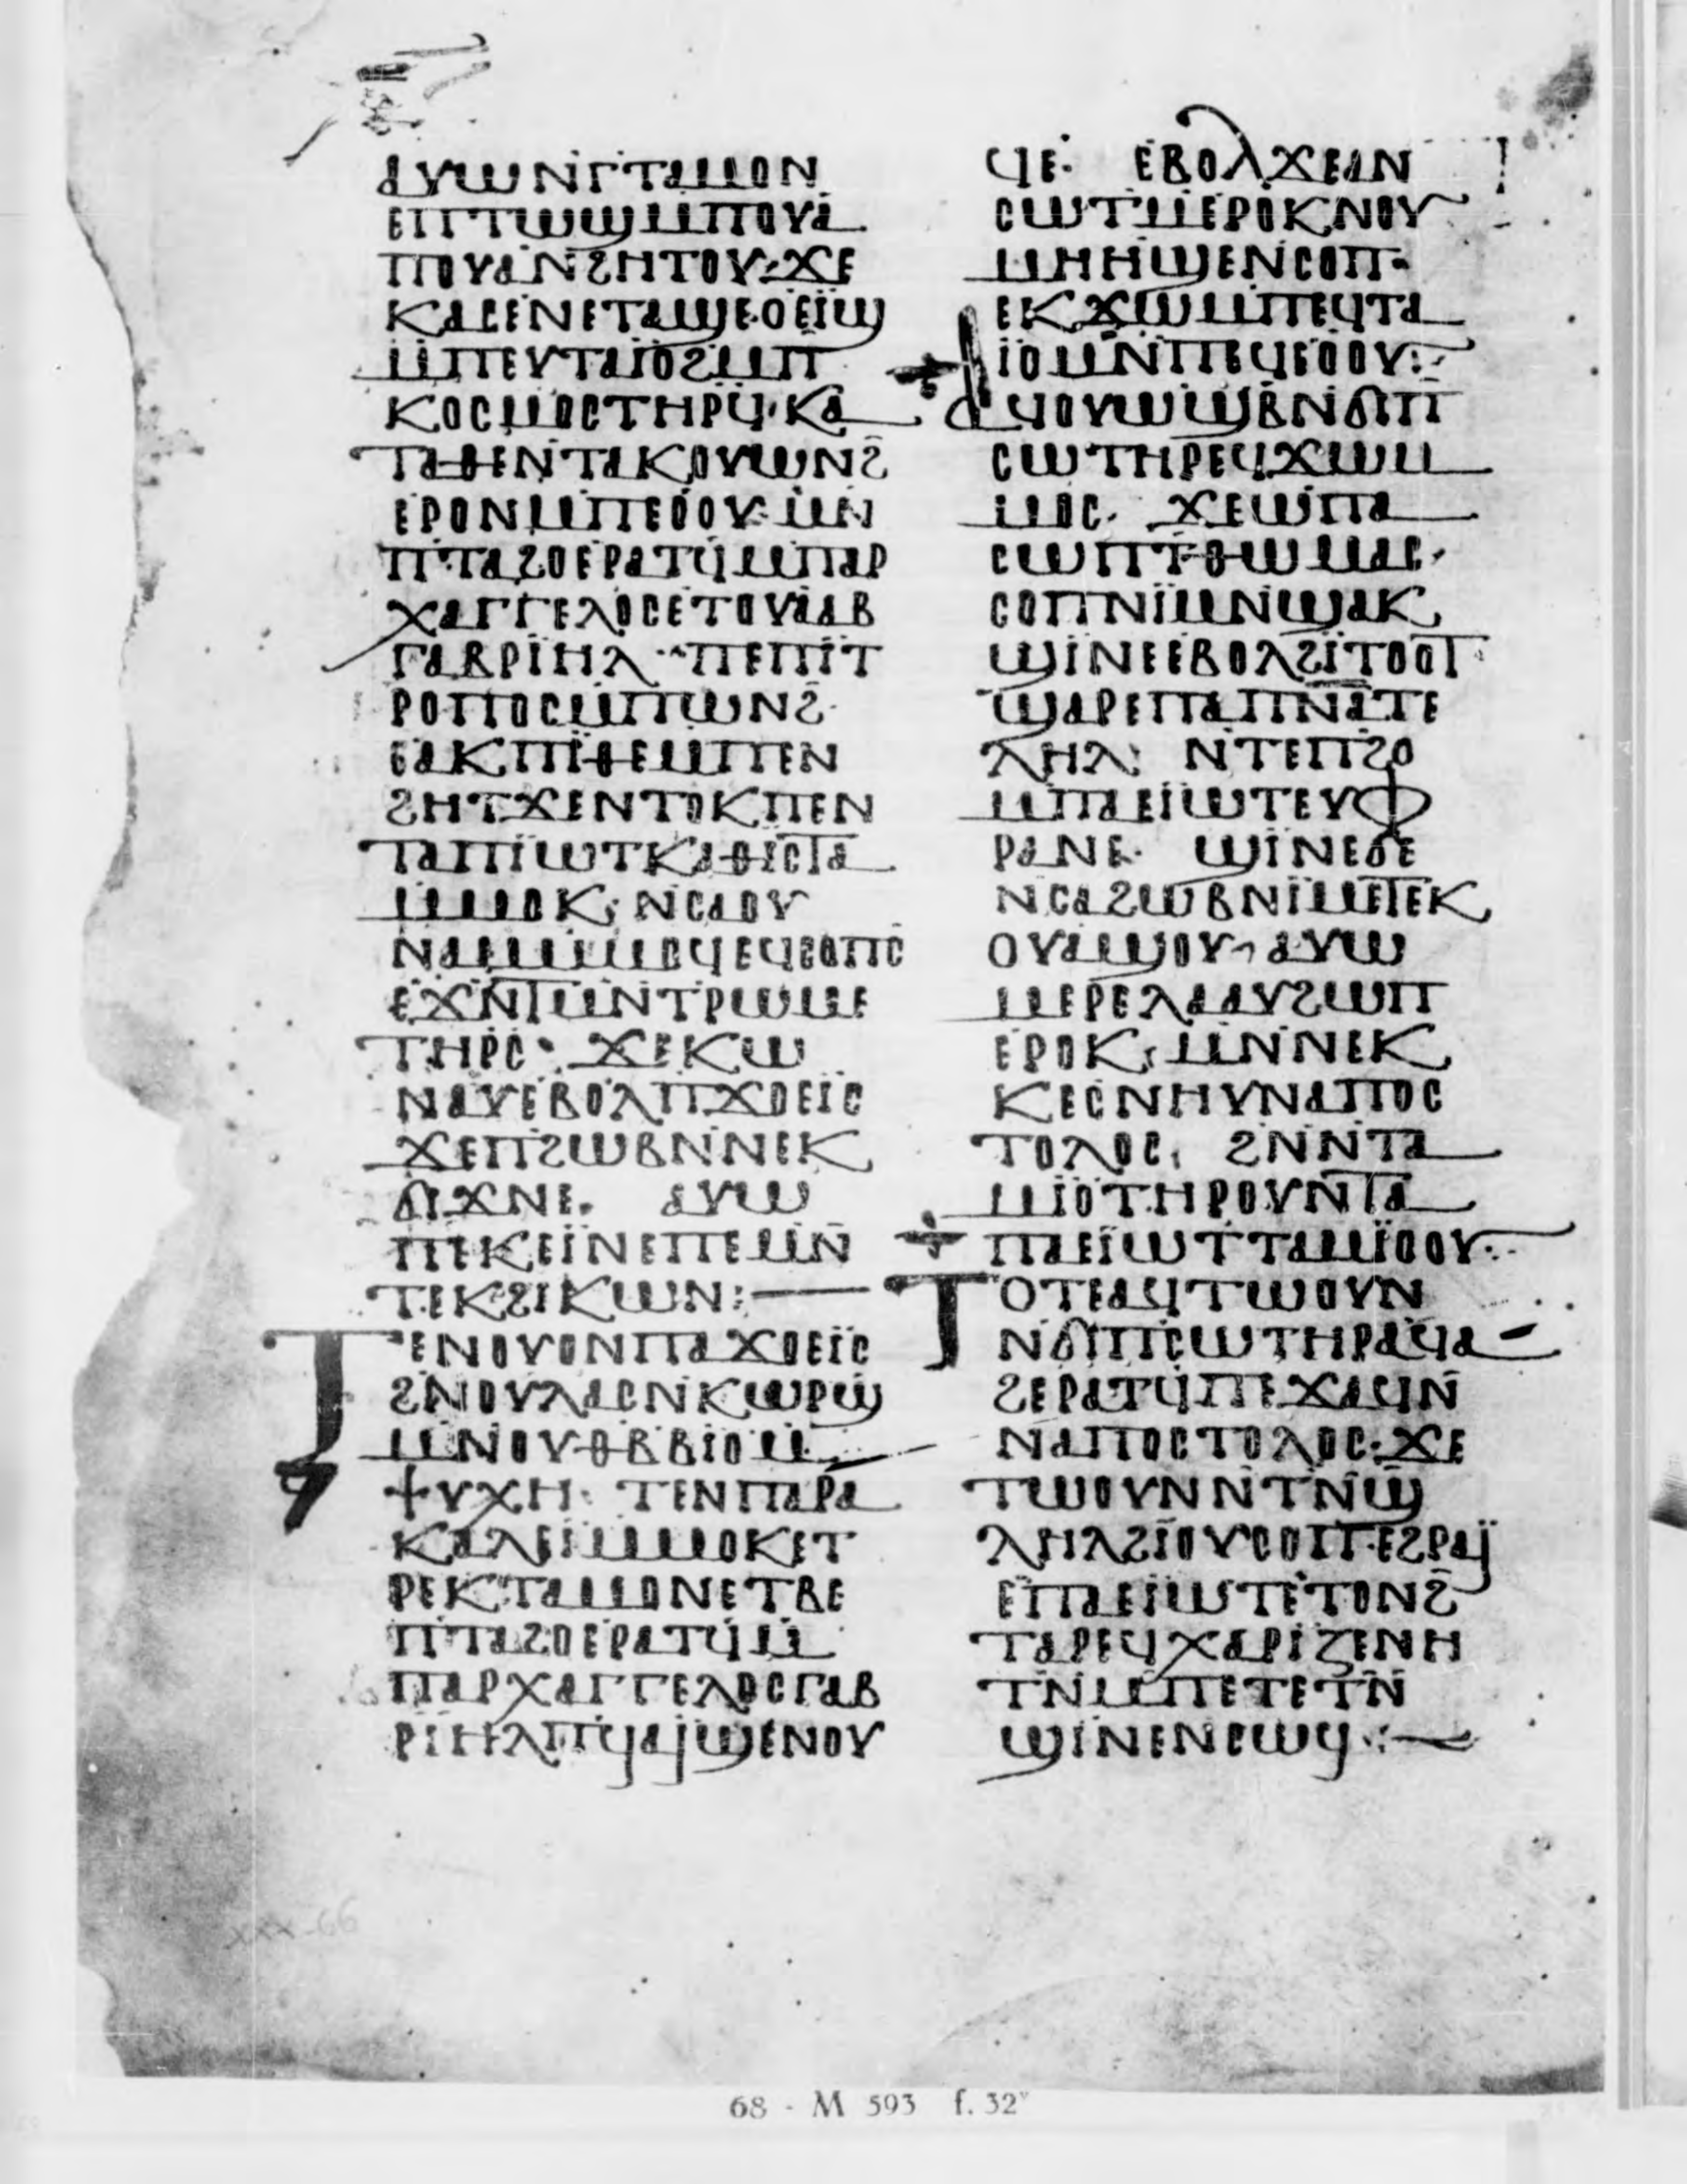 ⲁⲩⲱⲛⲅⲧⲁⲙⲟⲛ
ⲉⲡⲧⲱϣⲙⲡⲟⲩⲁ
ⲡⲟⲩⲁⲛϩⲏⲧⲟⲩ·ϫⲉ
ⲕⲁⲥⲉⲛⲉⲧⲁϣⲉⲟⲉⲓϣ
ⲙⲡⲉⲩⲧⲁⲓⲟϩⲙⲡ
ⲕⲟⲥⲙⲟⲥⲧⲏⲣϥ·ⲕⲁ
ⲧⲁⲑⲉⲛⲧⲁⲕⲟⲩⲱⲛϩ
ⲉⲣⲟⲛⲙⲡⲉⲟⲟⲩ·ⲙⲛ
ⲡⲧⲁϩⲟⲉⲣⲁⲧϥⲙⲡⲁⲣ
ⲭⲁⲅⲅⲉⲗⲟⲥⲉⲧⲟⲩⲁⲁⲃ
ⲅⲁⲃⲣⲓⲏⲗ·ⲡⲉⲡⲓⲧ
ⲣⲟⲡⲟⲥⲙⲡⲱⲛϩ·
ⲉⲁⲕⲡⲓⲑⲉⲙⲡⲉⲛ
ϩⲏⲧϫⲉⲛⲧⲟⲕⲡⲉⲛ
ⲧⲁⲡⲓⲱⲧⲕⲁⲑⲓⲥⲧⲁ
ⲙⲙⲟⲕ·ⲛⲥⲁⲟⲩ
ⲛⲁⲙⲙⲟϥⲉϥⲥⲟⲡⲥ
ⲉϫⲛⲧⲙⲛⲧⲣⲱⲙⲉ
ⲧⲏⲣⲥ· ϫⲉⲕⲱ
ⲛⲁⲩⲉⲃⲟⲗⲡϫⲟⲉⲓⲥ
ϫⲉⲡϩⲱⲃⲛⲛⲉⲕ
ϭⲓϫⲛⲉ. ⲁⲩⲱ
ⲡⲉⲕⲉⲓⲛⲉⲡⲉⲙⲛ
ⲧⲉⲕϩⲓⲕⲱⲛ:—
ⲧⲉⲛⲟⲩⲟⲛⲡⲁϫⲟⲉⲓⲥ
ϩⲛⲟⲩⲗⲁⲥⲛⲕⲱⲣϣ
ⲙⲛⲟⲩⲑⲃⲃⲓⲟⲙ
ⲯⲩⲭⲏ· ⲧⲉⲛⲡⲁⲣⲁ
ⲕⲁⲗⲉⲓⲙⲙⲟⲕⲉⲧ
ⲣⲉⲕⲧⲁⲙⲟⲛⲉⲧⲃⲉ
ⲡⲧⲁϩⲟⲉⲣⲁⲧϥⲙ
ⲡⲁⲣⲭⲁⲅⲅⲉⲗⲟⲥⲅⲁⲃ
ⲣⲓⲏⲗⲡϥⲁⲓϣⲉⲛⲟⲩ
ϥⲉ· ⲉⲃⲟⲗϫⲉⲁⲛ
ⲥⲱⲧⲙⲉⲣⲟⲕⲛⲟⲩ
ⲙⲏⲏϣⲉⲛⲥⲟⲡ·
ⲉⲕϫⲱⲙⲡⲉϥⲧⲁ
ⲓⲟⲙⲛⲡⲉϥⲉⲟⲟⲩ:
ⲁϥⲟⲩⲱϣⲃⲛϭⲓⲡ
ⲥⲱⲧⲏⲣⲉϥϫⲱⲙ
ⲙⲟⲥ· ϫⲉⲱⲡⲁ
ⲥⲱⲡⲧⲑⲱⲙⲁⲥ·
ⲥⲟⲡⲛⲓⲙⲛϣⲁⲕ
ϣⲓⲛⲉⲉⲃⲟⲗϩⲓⲧⲟⲟⲧ
ϣⲁⲣⲉⲡⲁⲡⲛⲁⲧⲉ
ⲗⲏⲗ: ⲛⲧⲉⲡϩⲟ
ⲙⲡⲁⲉⲓⲱⲧⲉⲩⲫ
ⲣⲁⲛⲉ· ϣⲓⲛⲉϭⲉ
ⲛⲥⲁϩⲱⲃⲛⲓⲙⲉⲧⲉⲕ
ⲟⲩⲁϣⲟⲩ·ⲁⲩⲱ
ⲙⲉⲣⲉⲗⲁⲁⲩϩⲱⲡ
ⲉⲣⲟⲕ·ⲙⲛⲛⲉⲕ
ⲕⲉⲥⲛⲏⲩⲛⲁⲡⲟⲥ
ⲧⲟⲗⲟⲥ· ϩⲛⲛⲧⲁ
ⲙⲓⲟⲧⲏⲣⲟⲩⲛⲧⲁ
ⲡⲁⲉⲓⲱⲧⲧⲁⲙⲓⲟⲟⲩ:·
ⲧⲟⲧⲉⲁϥⲧⲱⲟⲩⲛ
ⲛϭⲓⲡⲥⲱⲧⲏⲣⲁϥⲁ
ϩⲉⲣⲁⲧϥⲡⲉϫⲁϥⲛ
ⲛⲁⲡⲟⲥⲧⲟⲗⲟⲥ·ϫⲉ
ⲧⲱⲟⲩⲛⲛⲧⲛϣ
ⲗⲏⲗϩⲓⲟⲩⲥⲟⲡ·ⲉϩⲣⲁⲓ
ⲉⲡⲁⲉⲓⲱⲧⲉⲧⲟⲛϩ
ⲧⲁⲣⲉϥⲭⲁⲣⲓⲍⲉⲛⲏ
ⲧⲛⲙⲡⲉⲧⲉⲧⲛ
ϣⲓⲛⲉⲛⲥⲱϥ·:—
68 - M 593 f. 32ᵛ